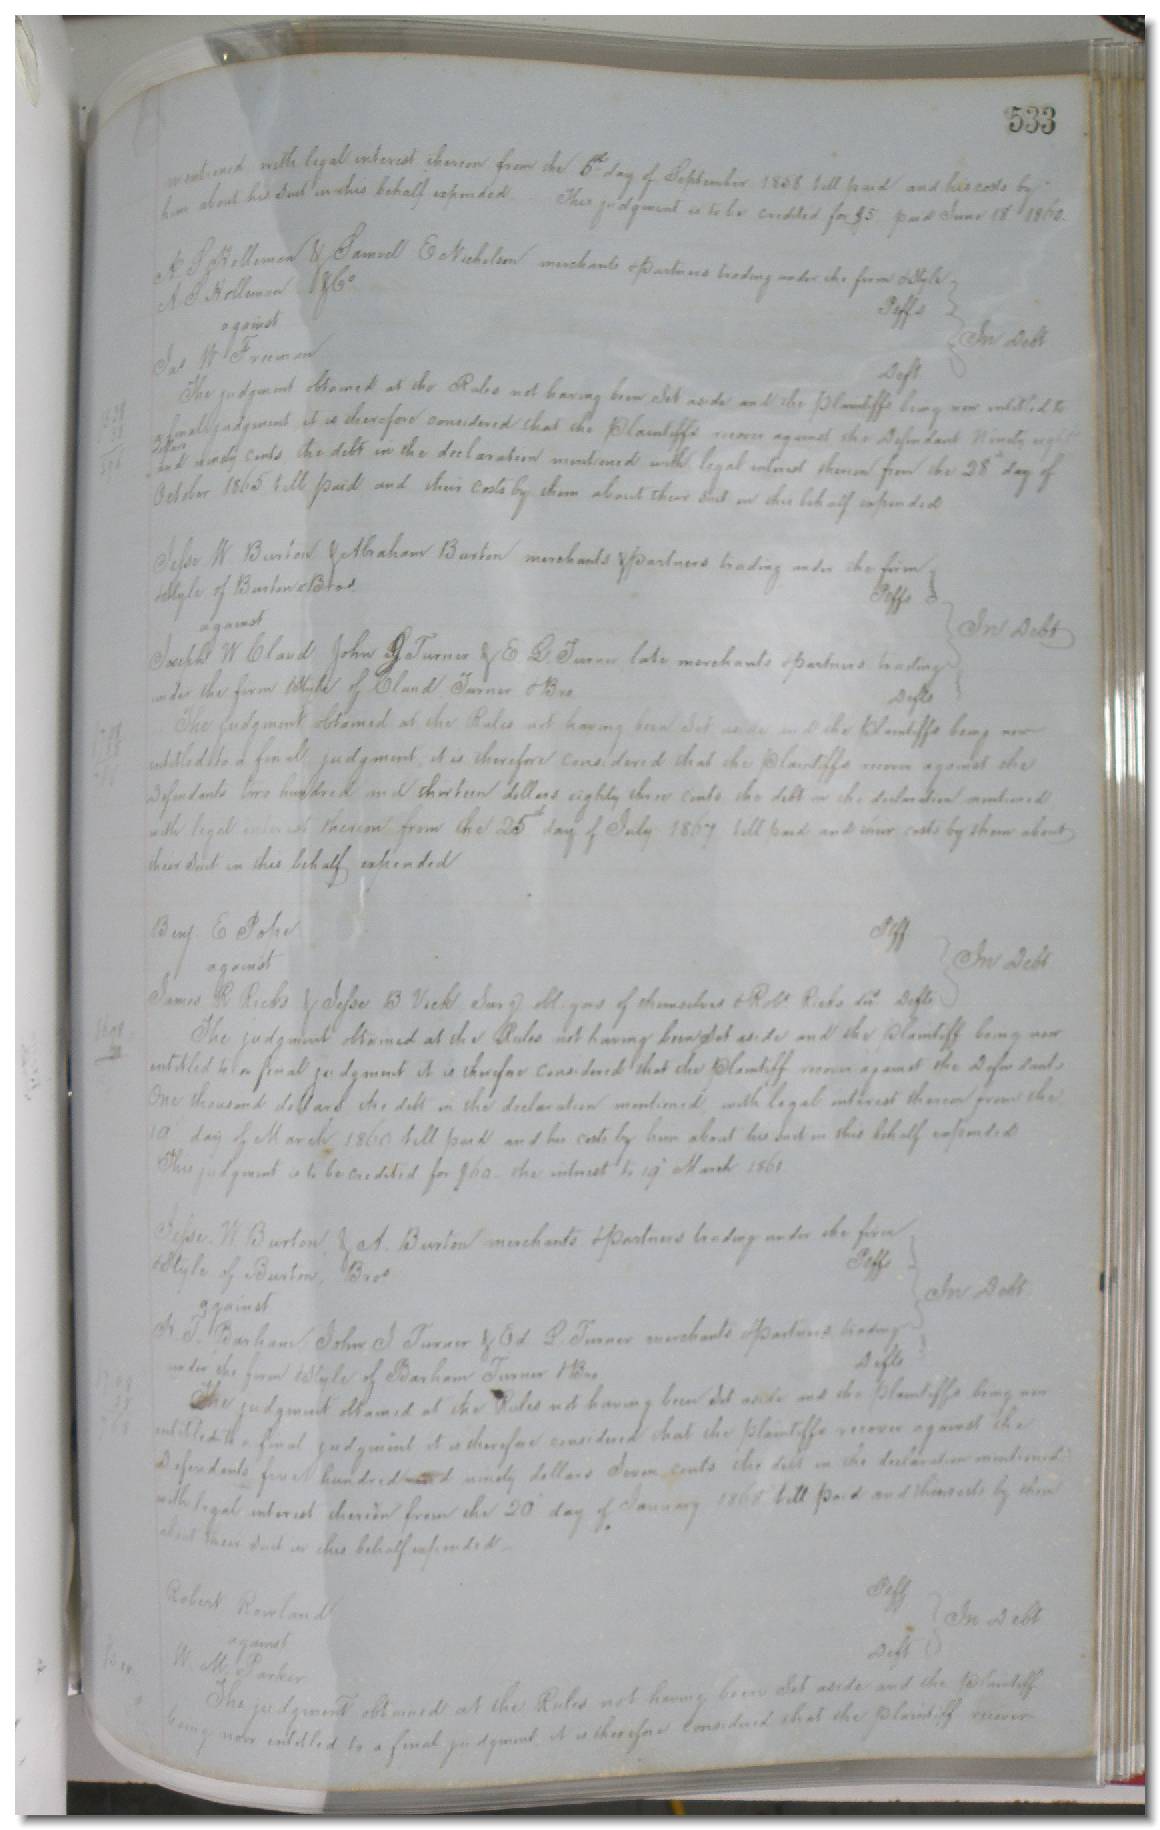 533
mentioned with legal interest thereon from the 5th day of September 1858 till paid and his costs by
him about his suit in this behalf expended. This judgment is to be credited for $5. paid June 18 1860.
A. S. Holleman & Samuel E Nicholson merchants & partners trading under the firm & Style
A S Holleman & Co Plffs
against In Debt
Jas W Freeman Deft
The judgment obtained at the Rules not having been Set aside and the Plaintiffs being now entitled to
a final judgment, it is therefore considered that the Plaintiffs recover against the Defendant Ninety eight
dollars
and ninety cents the debt in the declaration mentioned with legal interest thereon from the 28th day of
October 1865 till paid and their costs by them about their suit in this behalf expended
Jesse W. Burton & Abraham Burton merchants & partners trading under the firm
& Style of Burton & Bros Plffs
against In Debt
Joseph W Claud John Turner & E L Turner late merchants & partners trading
under the firm & Style of Claud Turner & Bro Defts
The judgment obtained at the Rules not having been Set aside and the Plaintiffs being now
entitled to a final judgment, it is therefore considered that the Plaintiffs recover against the
Defendants two hundred and thirteen dollars eighty three cents the debt in the declaration mentioned
with legal interest thereon from the 25th day of July 1867 till paid and their costs by them about
their Suit in this behalf expended
Benj. E Pope Plff
against In Debt
James R Ricks & Jesse B Vick Surv obligors of themselves & Robt Ricks decd Defts
The judgment obtained at the Rules not having been Set aside and the Plaintiff being now
entitled to a final judgment it is therefore considered that the Plaintiff recover against the Defendants
One thousand dollars the debt in the declaration mentioned, with legal interest thereon from the
19 day of March 1860 till paid and his costs by him about his suit in this behalf expended
This judgment is to be credited for $60. the interest to 19 March 1861
Jesse W Burton & A. Burton merchants & partners trading under the firm
& Style of Burton, Bros Plffs
against In Debt
Barham John J Turner & Ed L Turner merchants & partners trading
under the firm & Style of Barham Turner & Bro. Defts
The judgment obtained at the Rules not having been Set aside and the Plaintiffs being now
entitled to a final judgment it is therefore considered that the Plaintiffs recover against the
Defendants five hundred and ninety dollars Seven cents the debt in the declaration mentioned
with legal interest thereon from the 20 day of January 1868 till paid and their costs by them
about their Suit in this behalf expended
Robert Rowland Plff
against In Debt
W. M. Parker Deft
The judgment obtained at the Rules not having been Set aside and the Plaintiff
being now entitled to a final judgment it is therefore considered that the Plaintiff recover